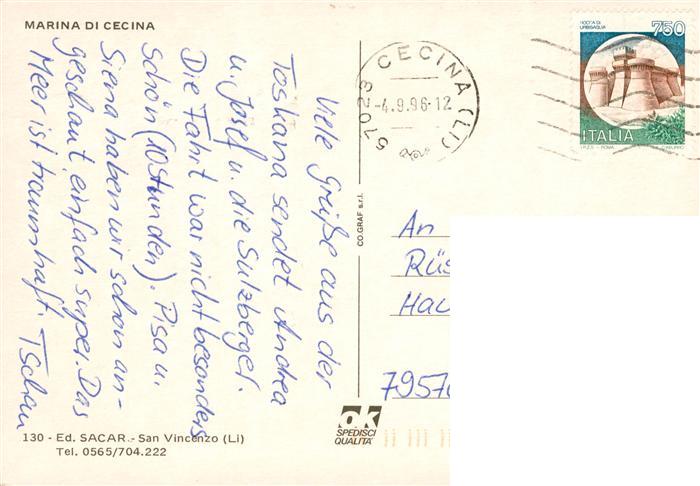 MARINA DI CECINA
Viele Grüße aus der
Toskana sendet Andrea
u. Josef u. die Sulzberger.
Die Fahrt war nicht besonders
schön (10 Stunden). Pisa u.
Siena haben wir schon an-
geschaut, einfach super. Das
Meer ist traumhaft. Tschau
130 - Ed. SACAR - San Vincenzo (Li)
Tel. 0565/704.222
CO.GRAF s.r.l.
ok
SPEDISCI
QUALITÀ
57023 CECINA (LI)
-4.9.96-12
ROCCA DI
URBISAGLIA
750
ITALIA
I.P.Z.S. - ROMA
An
Rüs
Hau
7957